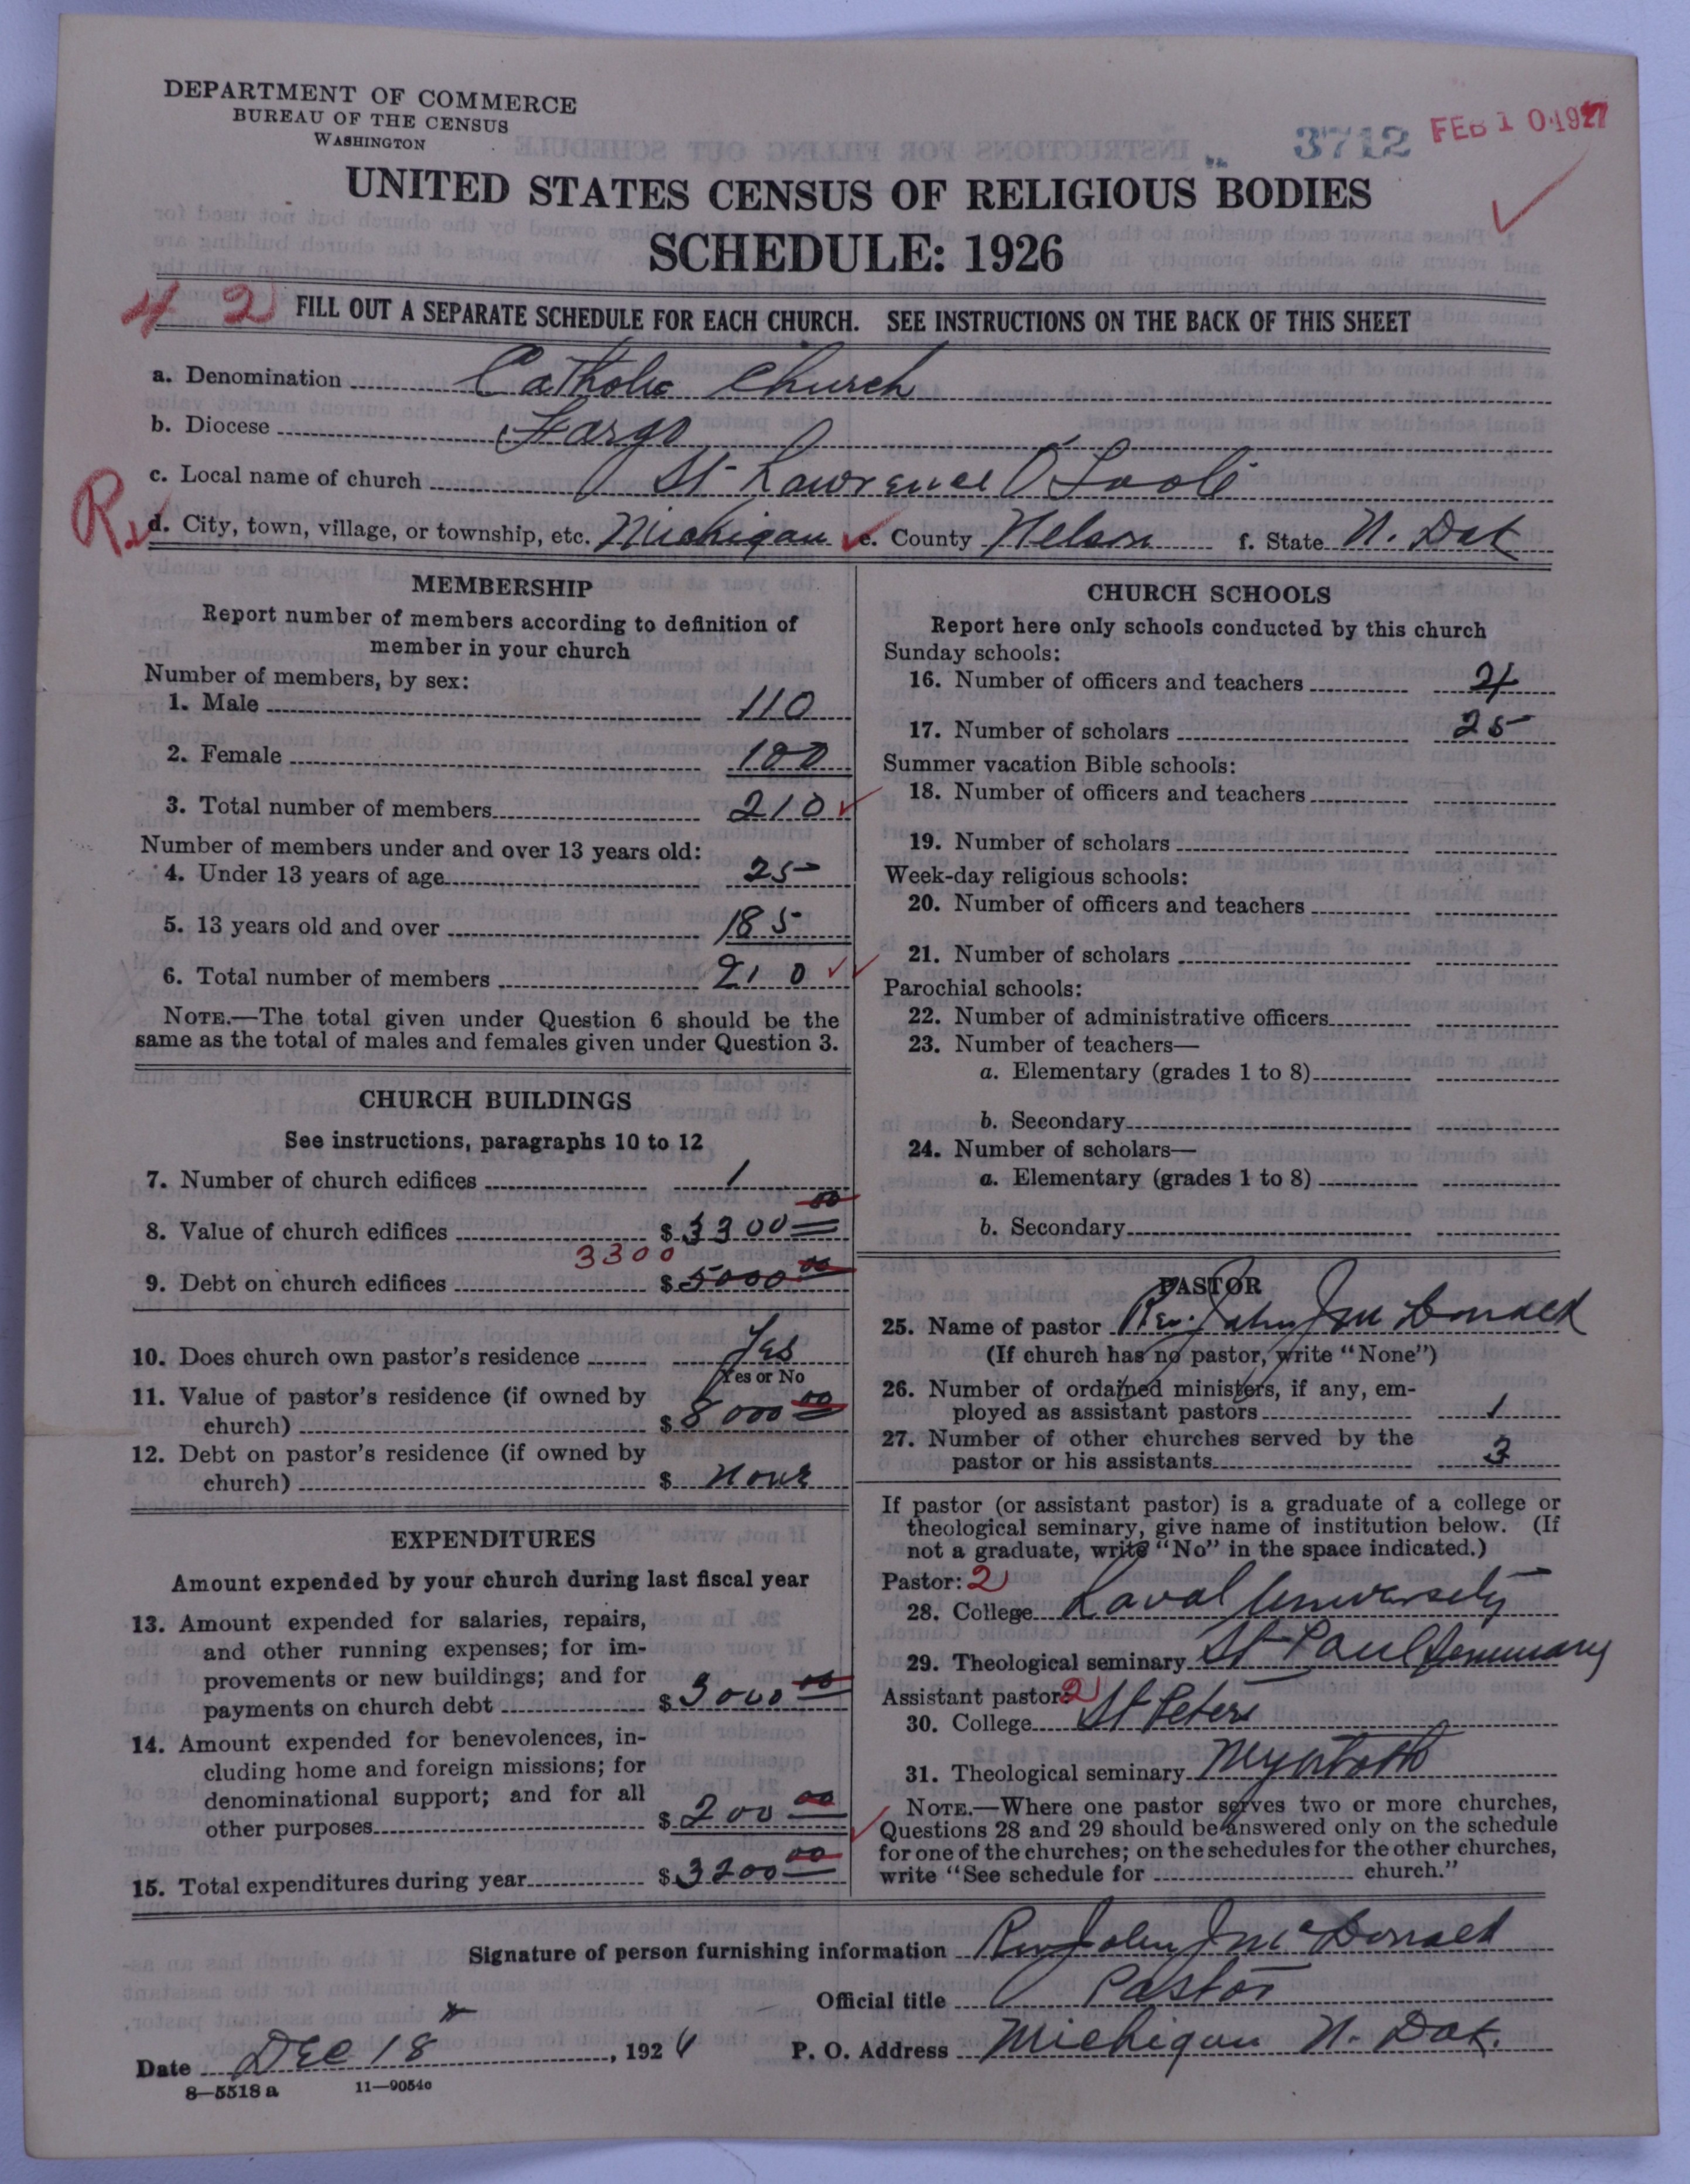 DEPARTMENT OF COMMERCE
BUREAU OF THE CENSUS
WASHINGTON
3712 FEB 10 1927
UNITED STATES CENSUS OF RELIGIOUS BODIES
SCHEDULE: 1926
4 2 FILL OUT A SEPARATE SCHEDULE FOR EACH CHURCH. SEE INSTRUCTIONS ON THE BACK OF THIS SHEET
a. Denomination Catholic Church
b. Diocese Fargo
c. Local name of church St Lawrence O Toole
R
d. City, town, village, or township, etc. Michigan e. County Nelson f. State N. Dak
MEMBERSHIP
Report number of members according to definition of
member in your church
Number of members, by sex:
1. Male 110
2. Female 100
3. Total number of members 210
Number of members under and over 13 years old:
4. Under 13 years of age 25
5. 13 years old and over 185
6. Total number of members 210
NOTE.—The total given under Question 6 should be the
same as the total of males and females given under Question 3.
CHURCH BUILDINGS
See instructions, paragraphs 10 to 12
7. Number of church edifices 1
8. Value of church edifices $ 3300 00
3300
9. Debt on church edifices $ 5000 00
10. Does church own pastor's residence Yes
Yes or No
11. Value of pastor's residence (if owned by
church) $ 8000 00
12. Debt on pastor's residence (if owned by
church) $ None
EXPENDITURES
Amount expended by your church during last fiscal year
13. Amount expended for salaries, repairs,
and other running expenses; for im-
provements or new buildings; and for
payments on church debt $ 3000 00
14. Amount expended for benevolences, in-
cluding home and foreign missions; for
denominational support; and for all
other purposes $ 200 00
15. Total expenditures during year $ 3200 00
CHURCH SCHOOLS
Report here only schools conducted by this church
Sunday schools:
16. Number of officers and teachers
17. Number of scholars 25
Summer vacation Bible schools:
18. Number of officers and teachers
19. Number of scholars
Week-day religious schools:
20. Number of officers and teachers
21. Number of scholars
Parochial schools:
22. Number of administrative officers
23. Number of teachers—
a. Elementary (grades 1 to 8)
b. Secondary
24. Number of scholars—
a. Elementary (grades 1 to 8)
b. Secondary
PASTOR
25. Name of pastor Rev. John J McDonald
(If church has no pastor, write "None")
26. Number of ordained ministers, if any, em-
ployed as assistant pastors 1
27. Number of other churches served by the
pastor or his assistants 3
If pastor (or assistant pastor) is a graduate of a college or
theological seminary, give name of institution below. (If
not a graduate, write "No" in the space indicated.)
Pastor: 2
28. College Laval University
29. Theological seminary St Paul Seminary
Assistant pastor: 2
30. College St Peters
31. Theological seminary
NOTE.—Where one pastor serves two or more churches,
Questions 28 and 29 should be answered only on the schedule
for one of the churches; on the schedules for the other churches,
write "See schedule for church."
Signature of person furnishing information Rev John J McDonald
Official title Pastor
Date Dec 18th, 1926 P. O. Address Michigan N. Dak.
8—5518a 11—9054c